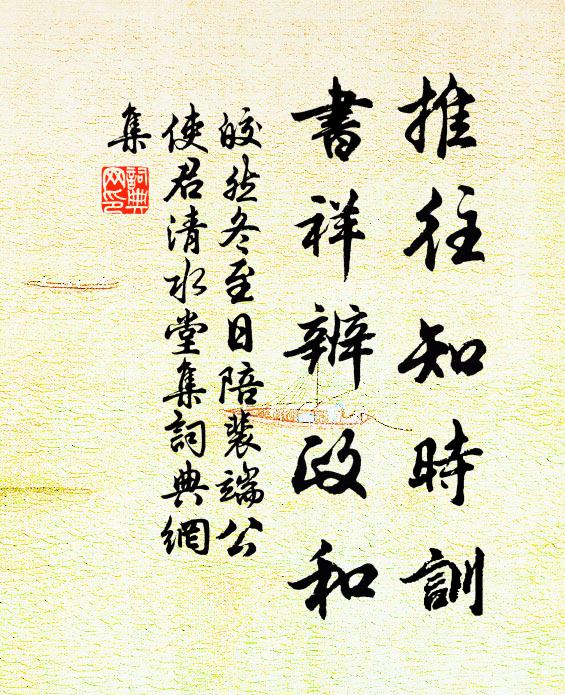 推往知時訓
書祥辨政和
皎然冬至日陪裴端公
使君清水堂集詞典網
集
詞典
网印